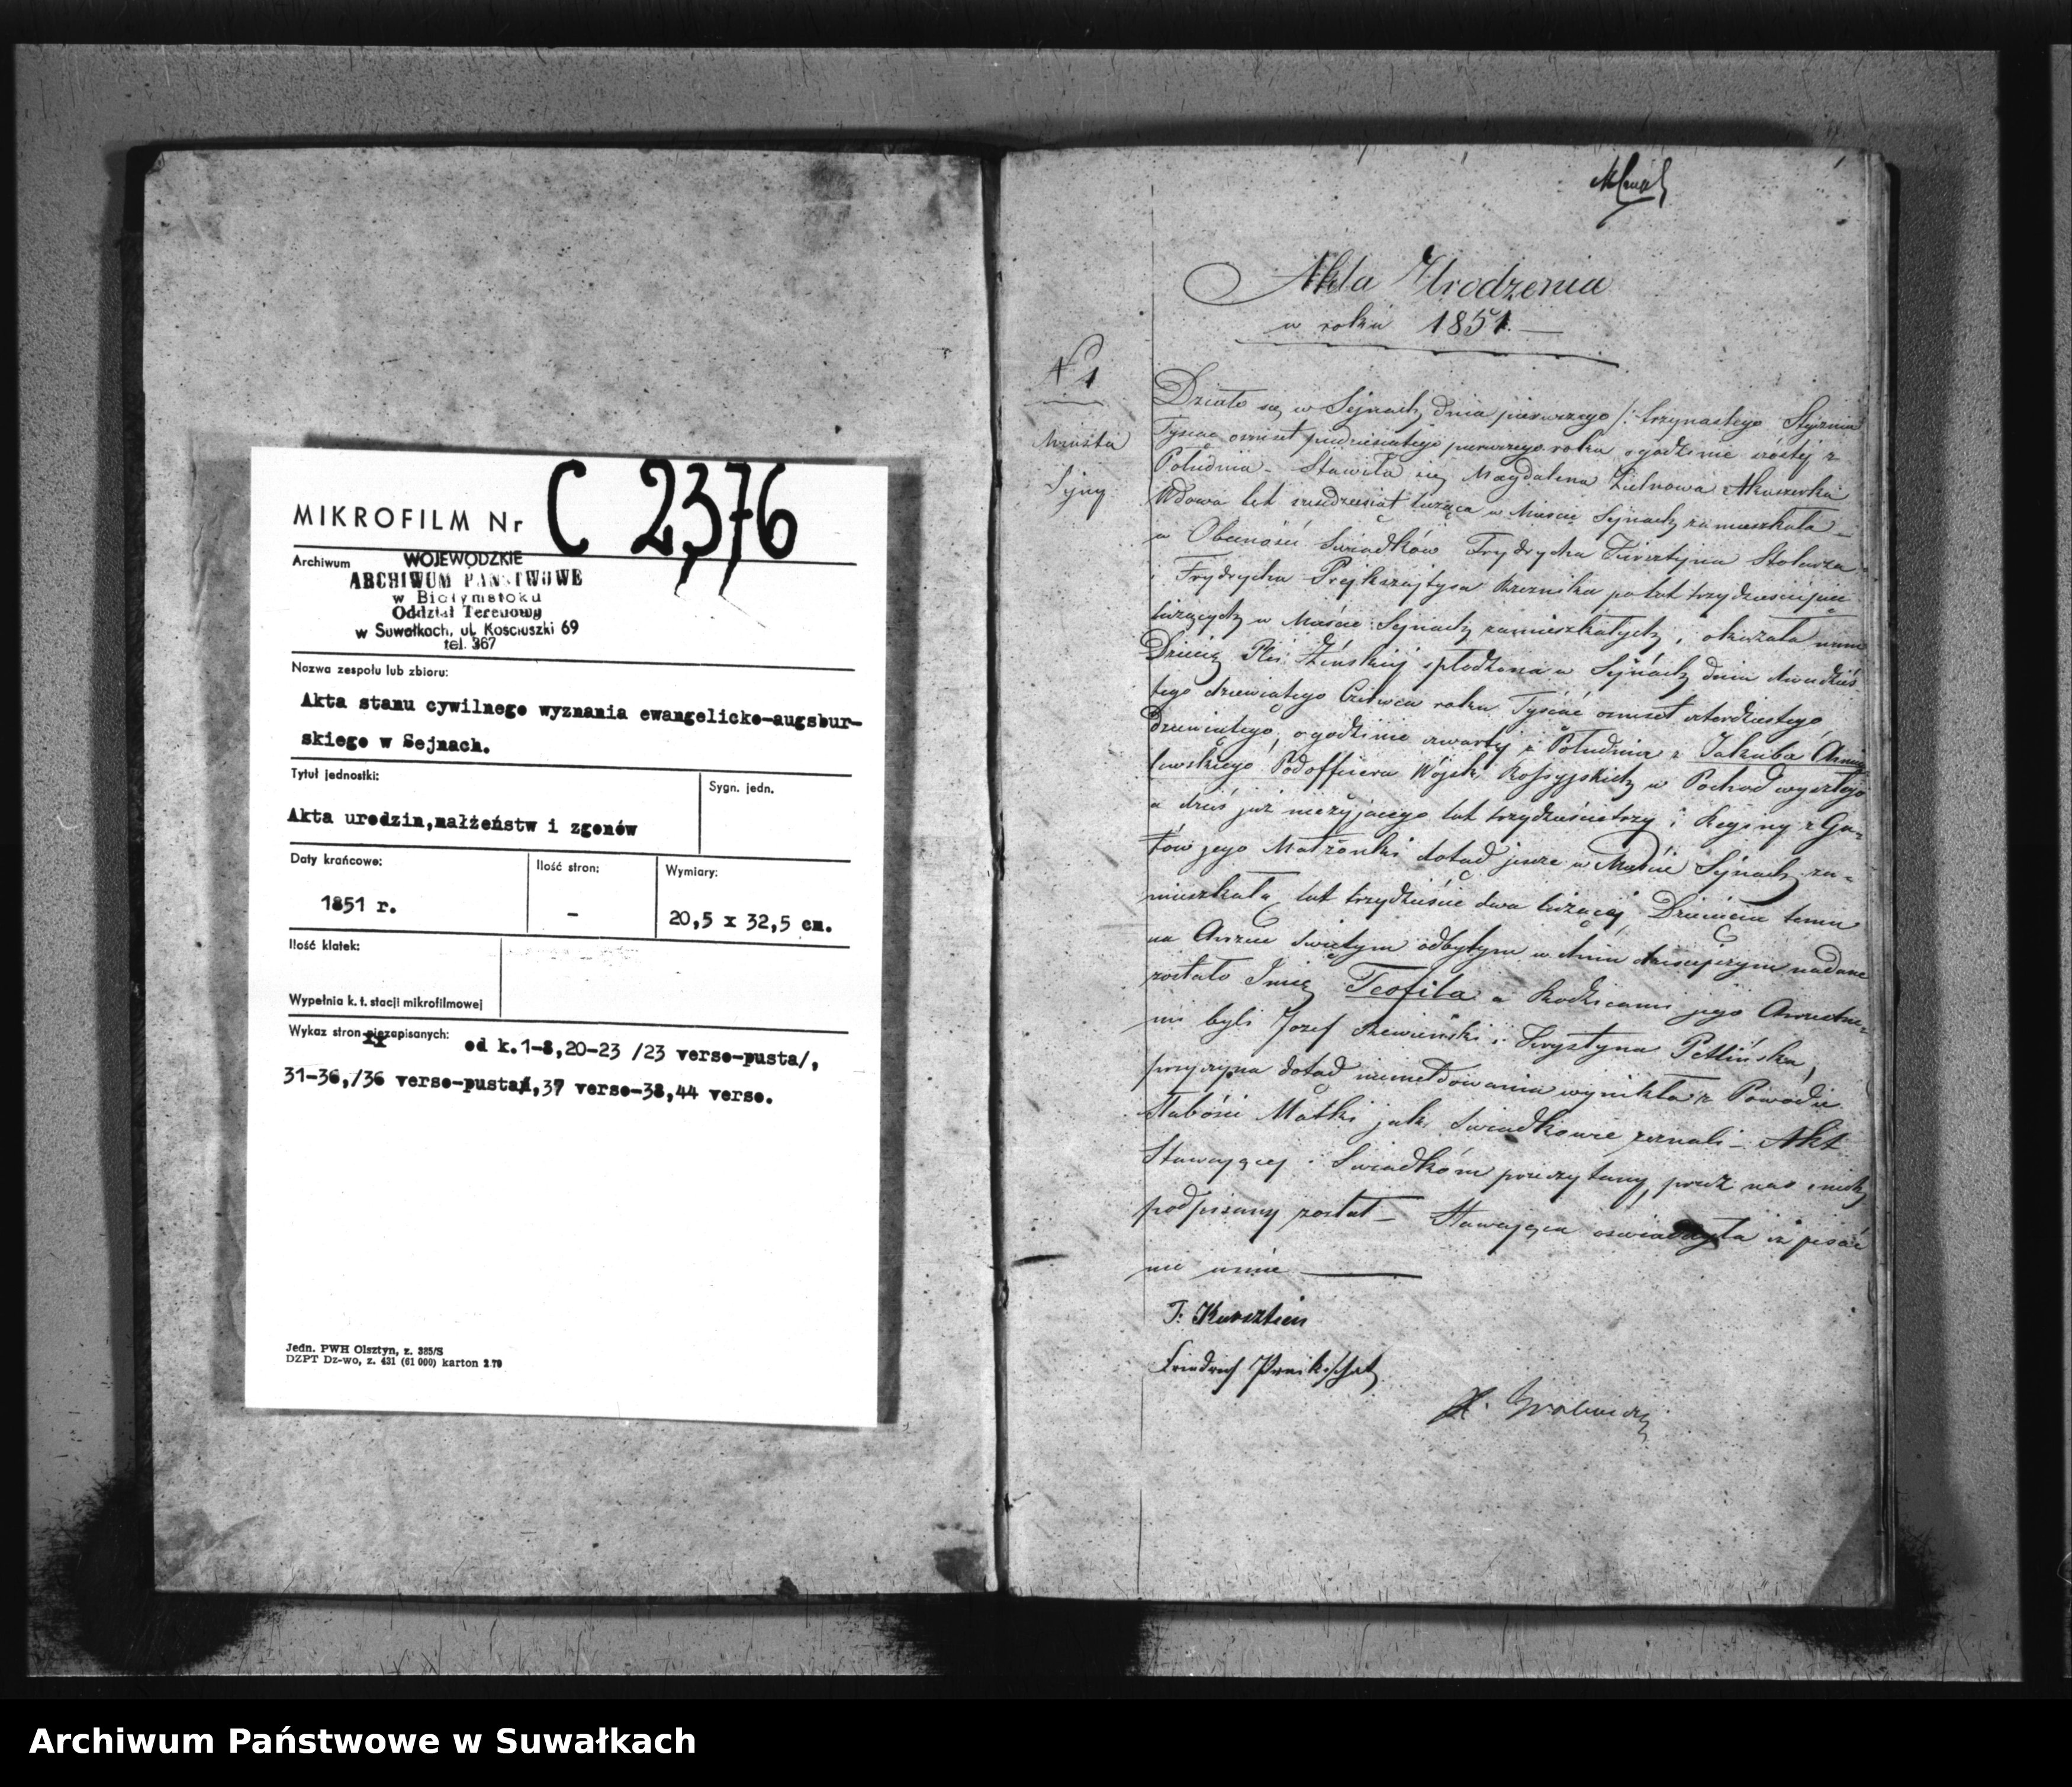 MIKROFILM Nr C 2376
Archiwum WOJEWÓDZKIE
ARCHIWUM PAŃSTWOWE
w Białymstoku
Oddział Terenowy
w Suwałkach, ul. Kościuszki 69
tel. 367
Nazwa zespołu lub zbioru:
Akta stanu cywilnego wyznania ewangelicko-augsbur-
skiego w Sejnach.
Tytuł jednostki:
Sygn. jedn.
Akta urodzin,małżeństw i zgonów
Daty krańcowe:
Ilość stron:
Wymiary:
1851 r.
–
20,5 x 32,5 cm.
Ilość klatek:
Wypełnia k. t. stacji mikrofilmowej
Wykaz stron zapisanych: od k.1-8,20-23 /23 verso-pusta/,
31-36,/36 verso-pusta/,37 verso-38,44 verso.
Jedn. PWH Olsztyn, z. 385/S
DZPT Dz-wo, z. 431 (61 000) karton 2.79
Akta Urodzenia
w roku 1851.
N 1
Miasto
Sejny
Działo się w Sejnach dnia pierwszego /: trzynastego Stycznia
Tysiąc osmset pięćdziesiątego pierwszego roku o godzinie szóstej z
Południa – Stawiła się Magdalena Akuszerka
Wdowa lat sześdziesiąt licząca w Mieście Sejnach zamieszkała –
w Obecności Świadków Frydrycha Stolarza
i Frydrycha Prejkszajtysa Rzeznika po lat trzydzieście
liczących w Mieście Sejnach zamieszkałych, i okazała nam
Dziecię Płci Żeńskiej spłodzona w Sejnach dnia dwudzies-
tego dziewiątego Czerwca roku Tysiąc osmset czterdziestego
dziewiątego, o godzinie czwartej z Południa z Jakuba
Podofficera Wójsk Rossyjskich w Pochod wyszłego
a dziś już nieżyjącego lat trzydzieście trzy i Reginy z Ga-
tów jego Małżonki dotąd jeszcze w Mieście Sejnach za-
mieszkałą lat trzydzieście dwa liczącej, Dziecięciu temu
na Chrzcie Świętym odbytym w dniu dzisiejszym nadane
zostało Imię Teofila a Rodzicami jego Chrzestne-
mi byli Jozef i Krystyna
przyczyna dotąd niemeldowania wynikła z Powodu
słabości Matki jak Świadkowie zeznali – Akt
Stawającej i Świadkóm przeczytany, przez nas i nich
podpisany został – Stawająca oswiadczyła iż pisać
nie umie
Friedrich Preikschat